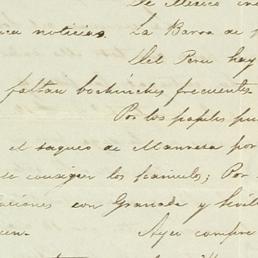 De Mexico
noticias. La Barra de
del Peru hay
faltan bochinches frecuente
Por los papeles pu
el saqueo de Manresa por
consiguen los
aciones con Granada y Sevil
Ayer compre